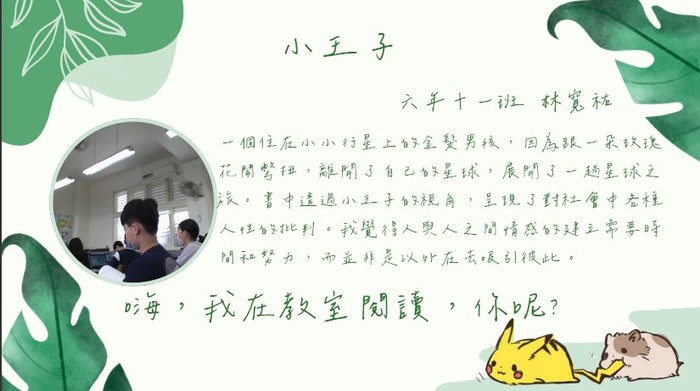 小王子
六年十一班 林寬祐
一個住在小小行星上的金髮男孩，因為跟一朵玫瑰
花鬧彆扭，離開了自己的星球，展開了一趟星球之
旅。書中透過小王子的視角，呈現了對社會中各種
人性的批判。我覺得人與人之間情感的建立需要時
間和努力，而並非是以外在去吸引彼此。
嗨，我在教室閱讀，你呢？